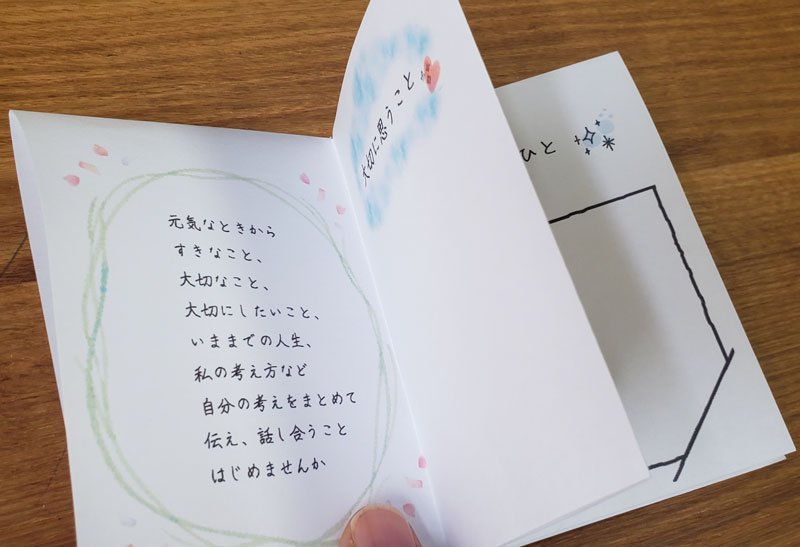 元気なときから
すきなこと、
大切なこと、
大切にしたいこと、
いままでの人生、
私の考え方など
自分の考えをまとめて
伝え、話し合うこと
はじめませんか
大切に思うこと
ひと